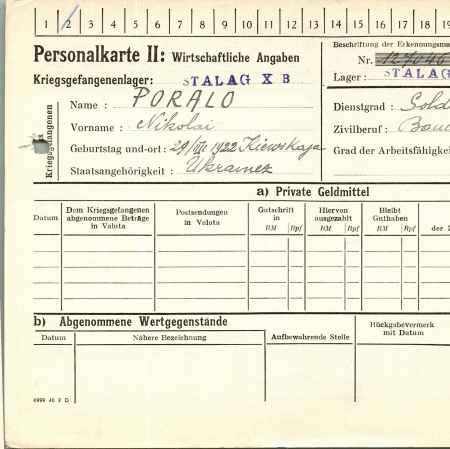 1 2 3 4 5 6 7 8 9 10 11 12 13 14 15 16 17 18 19
Personalkarte II: Wirtschaftliche Angaben
Beschriftung der Erkennungsma
Nr. 127046
Kriegsgefangenenlager: STALAG X B
Lager: STALAG
Kriegsgefangenen
Name: PORALO
Dienstgrad: Sold
Vorname: Nikolai
Zivilberuf: Bau
Geburtstag und-ort: 29/VII 1922 Kiewskaja
Grad der Arbeitsfähigkei
Staatsangehörigkeit: Ukrainez
a) Private Geldmittel
Datum
Dem Kriegsgefangenen abgenommene Beträge in Valuta
Postsendungen in Valuta
Gutschrift in
RM Rpf
Hiervon ausgezahlt
RM Rpf
Bleibt Guthaben
RM Rpf
der Z
b) Abgenommene Wertgegenstände
Datum
Nähere Bezeichnung
Aufbewahrende Stelle
Rückgabevermerk mit Datum
4999 40 2 D